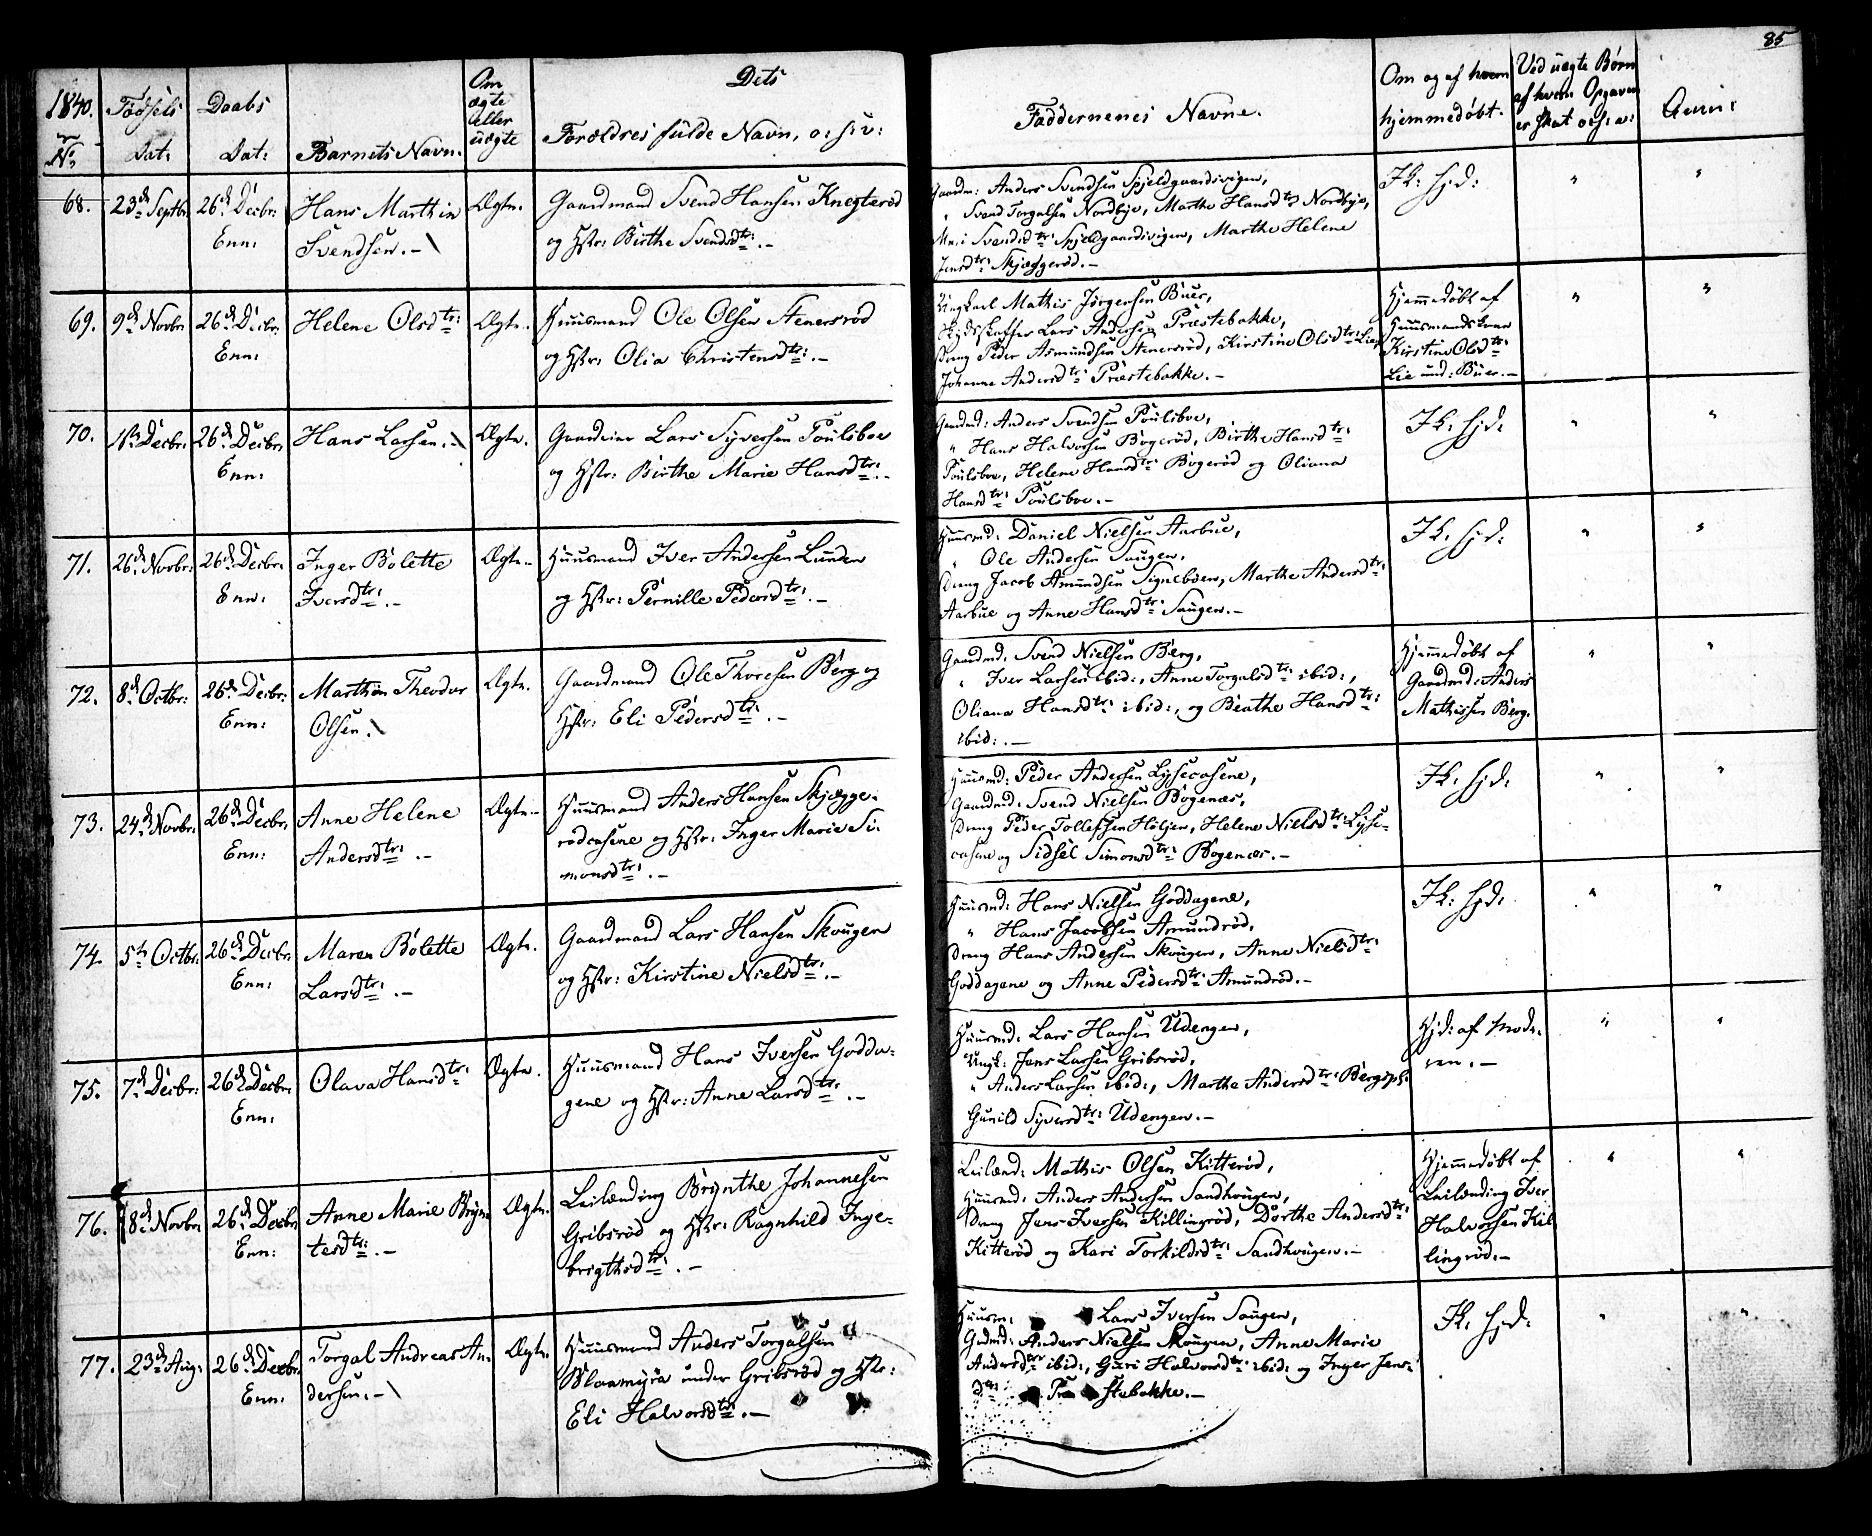 85
1840.
No
Fødsels
Dat:
Daabs
Dat:
Barnets Navn.
Om
ægte
eller
uægte
Dets
Forældres fulde Navn, o: s: v:
Faddernenes Navne.
Om og af hvem
hjemmedøbt.
Ved uægte Børn
af hvem Opgaven
er skat o: s: v:
Anm:
68.
23de Septbr:
26de Decbr:
Enn:
Hans Marthin
Svendsen. -
Ægte.
Gaardmand Svend Hansen Knegterød
og Hstr: Birthe Svendsdtr: . -
Gaardm: Anders Svendsen Spjeldgaardsvigen,
" Svend Torgalsen Nordbye, Marthe Hansdtr Nordbye,
Mari Svendsdtr: Spjeldgaardsvigen, Marthe Helene
Jensdtr: Skjæggerød. -
Ik: hjd:
"
"
69.
9de Novbr:
26de Decbr:
Enn:
Helene Olsdtr:
Ægte.
Huusmand Ole Olsen Stenersrød
og Hstr: Olia Christensdtr: . -
Ungkarl Mathis Jørgensen Buer,
Skydsskaffer Lars Andersen Præstebakke,
Dreng Peder Asmundsen Stenersrød, Kirstine Olsdtr Lie,
Johanne Andersdtr: Præstebakke. -
Hjemmedøbt af
Huusmandskone
Kirstine Olsdtr:
Lie und: Buer. -
"
"
70.
11te Decbr:
26de Decbr:
Enn:
Hans Larsen. -
Ægte.
Gaardeier Lars Syversen Poulsboe
og Hstr: Birthe Marie Hansdtr: . -
Gaardmd: Anders Svendsen Poulsboe,
" Hans Halvorsen Bøgerød, Birthe Hansdtr:
Poulsboe, Helene Hansdtr: Bøgerød og Oliana
Hansdtr: Poulsboe. -
Ik: hjd:
"
"
71.
26de Novbr:
26de Decbr:
Enn:
Inger Bolette
Iversdtr: . -
Ægte.
Huusmand Iver Andersen Lunden
og Hstr: Pernille Pedersdtr: . -
Huusmd: Daniel Nielsen Aarbue,
" Ole Andersen Saugen,
Dreng Jacob Amundsen Signeboen, Marthe Andersdtr:
Aarbue og Anne Hansdtr: Saugen. -
Ik: hjd:
"
"
72.
8de Octbr:
26de Decbr:
Enn:
Marthin Theodor
Olsen.
Ægte.
Gaardmand Ole Thoresen Berg og
Hstr: Eli Pedersdtr: . -
Gaardmd: Svend Nielsen Berg,
" Iver Larsen ibid:, Anne Torgalsdtr: ibid:,
Oliana Hansdtr: ibid:, og Beathe Hansdtr:
ibid: . -
Hjemmedøbt af
Gaardmd: Anders
Mathissen Berg.
"
"
73.
24de Novbr:
26de Decbr:
Enn:
Anne Helene
Andersdtr: . -
Ægte.
Huusmand Anders Hansen Skjægge-
rødcasene og Hstr: Inger Marie Si-
monsdtr: . -
Huusmd: Peder Andersen Lysecasene,
Gaardmd: Svend Nielsen Bøgenæs,
Dreng Peder Tollefsen Holjen, Helene Nielsdtr: Lyse-
casene og Sidsel Simonsdtr: Bøgenæs. -
Ik: hjd:
"
"
74.
5te Octbr:
26de Decbr:
Enn:
Maren Bolette
Larsdtr: . -
Ægte.
Gaardmand Lars Hansen Skougen
og Hstr: Kirstine Nielsdtr: . -
Huusmd: Hans Nielsen Goddagene,
" Hans Jacobsen Amundrød,
Dreng Hans Andersen Skougen, Anne Nielsdtr:
Goddagene og Anne Pedersdtr: Amundrød. -
Ik: hjd:
"
"
75.
7de Decbr:
26de Decbr:
Enn:
Olava Hansdtr:
Ægte.
Huusmand Hans Iversen Godda-
gene og Hstr: Anne Larsdtr: . -
Huusmd: Lars Hansen Udengen,
Ungk: Jens Larsen Gribsrød,
" Anders Larsen ibid:, Marthe Andersdtr: Bergspl:
Gunild Syversdtr: Udengen. -
Hjd: af Mode-
ren. -
"
"
76.
18de Novbr:
26de Decbr:
Enn:
Anne Marie Bryn-
tesdtr: . -
Ægte.
Leilænding Brynthe Johannesen
Gribsrød og Hstr: Ragnhild Inge-
brigthsdtr: . -
Leilænd: Mathis Olsen Kitterød,
Huusmd: Anders Andersen Sandhougen,
Dreng Jens Iversen Killingrød, Dorthe Andersdtr:
Kitterød og Kari Torkildsdtr: Sandhougen. -
Hjemmedøbt af
Leilænding Iver
Halvorsen Kil-
lingrød. -
"
"
77.
23de Aug:
26de Decbr:
Enn:
Torgal Andreas An-
dersen. -
Ægte.
Huusmand Anders Torgalsen
Blaamyra under Gribsrød og Hstr:
Eli Halvorsdtr: . -
Huusm: Lars Iversen Saugen,
Gdmd: Anders Nielsen Skougen, Anne Marie
Andersdtr ibid:, Guri Halvorsdtr: ibid: og Inger Jens-
dtr: Præstebakke. -
Ik. hjd:
"
"